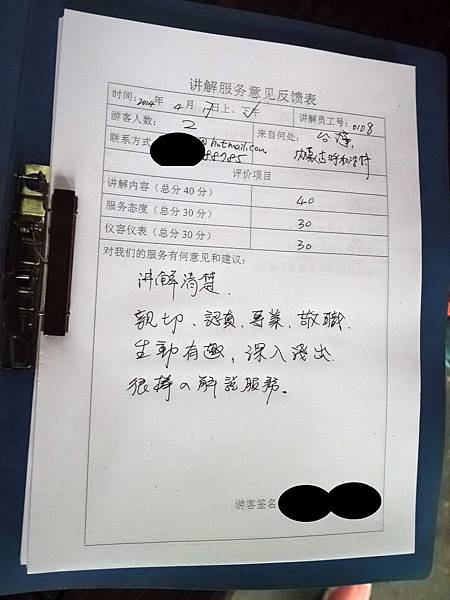 讲解服务意见反馈表
时间:2014年 4月 7日上、下午 讲解员工号:0108
游客人数: 2 来自何处: 台灣,
联系方式 @hotmail.com 內蒙古呼和浩特
88785
评价项目
讲解内容(总分40分) 40
服务态度(总分30分) 30
仪容仪表(总分30分) 30
对我们的服务有何意见和建议:
讲解清楚.
親切、認真、專業、敬職.
生動有趣,深入淺出.
很棒の解說服務。
游客签名